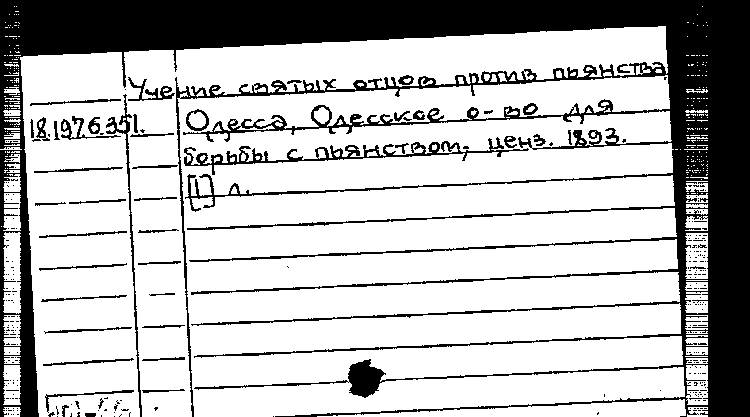 Учение святых отцов против пьянства
18.197635 1. Одесса, Одесское о-во для
борьбы с пьянством, ценз. 1893.
[1] л.